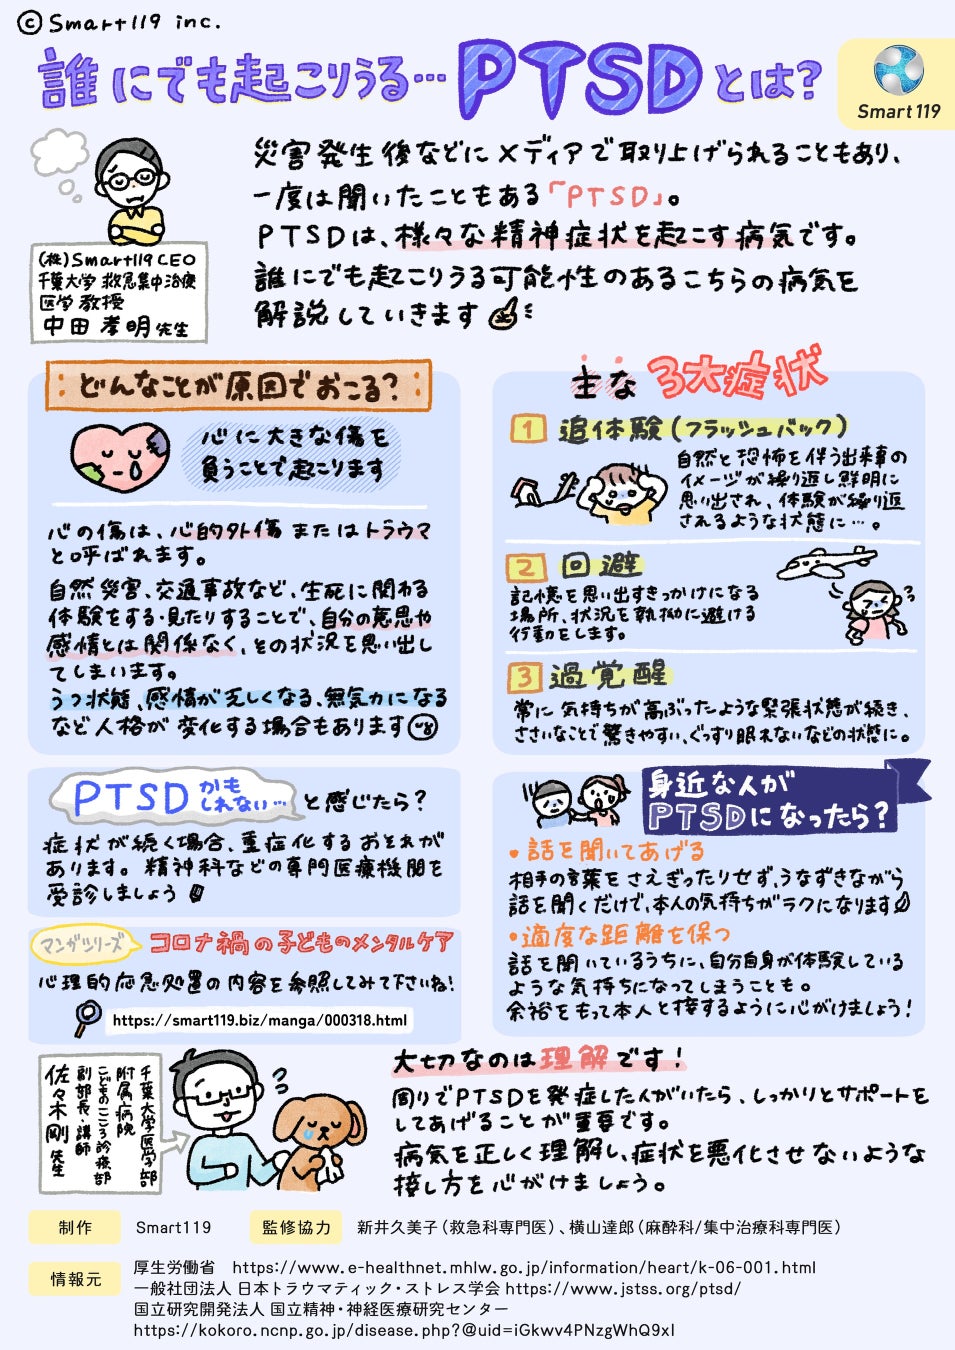 ©Smart119 inc.
誰にでも起こりうる…PTSDとは?
Smart119
災害発生後などにメディアで取り上げられることもあり、
一度は聞いたこともある「PTSD」。
PTSDは、様々な精神症状を起こす病気です。
誰にでも起こりうる可能性のあるこちらの病気を
解説していきます
(株)Smart119 CEO
千葉大学 救急集中治療
医学 教授
中田 孝明 先生
どんなことが原因でおこる?
心に大きな傷を
負うことで起こります
心の傷は、心的外傷 または トラウマ
と呼ばれます。
自然災害、交通事故など、生死に関わる
体験をする・見たりすることで、自分の意思や
感情とは関係なく、その状況を思い出し
てしまいます。
うつ状態、感情が乏しくなる、無気力になる
など人格が変化する場合もあります
主な 3大症状
1 追体験(フラッシュバック)
自然と恐怖を伴う出来事の
イメージが繰り返し鮮明に
思い出され、体験が繰り返
されるような状態に…。
2 回避
記憶を思い出すきっかけになる
場所、状況を執拗に避ける
行動をします。
3 過覚醒
常に気持ちが高ぶったような緊張状態が続き、
ささいなことで驚きやすい、ぐっすり眠れないなどの状態に。
PTSDかもしれない… と感じたら?
症状が続く場合、重症化するおそれが
あります。精神科などの専門医療機関を
受診しましょう
マンガシリーズ コロナ禍の子どものメンタルケア
心理的応急処置の内容を参照してみて下さいね!
https://smart119.biz/manga/000318.html
身近な人が
PTSDになったら?
•話を聞いてあげる
相手の言葉をさえぎったりせず、うなずきながら
話を聞くだけで、本人の気持ちがラクになります
•適度な距離を保つ
話を聞いているうちに、自分自身が体験している
ような気持ちになってしまうことも。
余裕をもって本人と接するように心がけましょう!
千葉大学医学部
附属病院
こどものこころ診療部
副部長・講師
佐々木剛 先生
大切なのは理解です!
周りでPTSDを発症した人がいたら、しっかりとサポートを
してあげることが重要です。
病気を正しく理解し、症状を悪化させないような
接し方を心がけましょう。
制作 Smart119 監修協力 新井久美子(救急科専門医)、横山達郎(麻酔科/集中治療科専門医)
情報元 厚生労働省 https://www.e-healthnet.mhlw.go.jp/information/heart/k-06-001.html
一般社団法人 日本トラウマティック・ストレス学会 https://www.jstss.org/ptsd/
国立研究開発法人 国立精神・神経医療研究センター
https://kokoro.ncnp.go.jp/disease.php?@uid=iGkwv4PNzgWhQ9xI